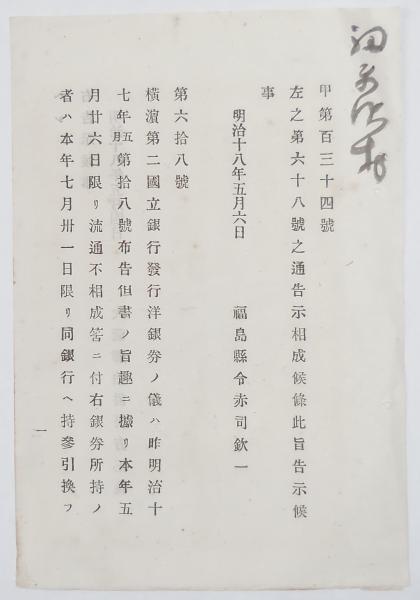 甲第百三十四號
左之第六十八號之通告示相成候條此旨告示候
事
明治十八年五月六日　福島縣令赤司欽一
第六拾八號
橫濱第二國立銀行發行洋銀券ノ儀ハ昨明治十
七年五月第拾八號布告但書ノ旨趣ニ據リ本年五
月廿六日限リ流通不相成筈ニ付右銀券所持ノ
者ハ本年七月卅一日限リ同銀行ヘ持參引換フ
一